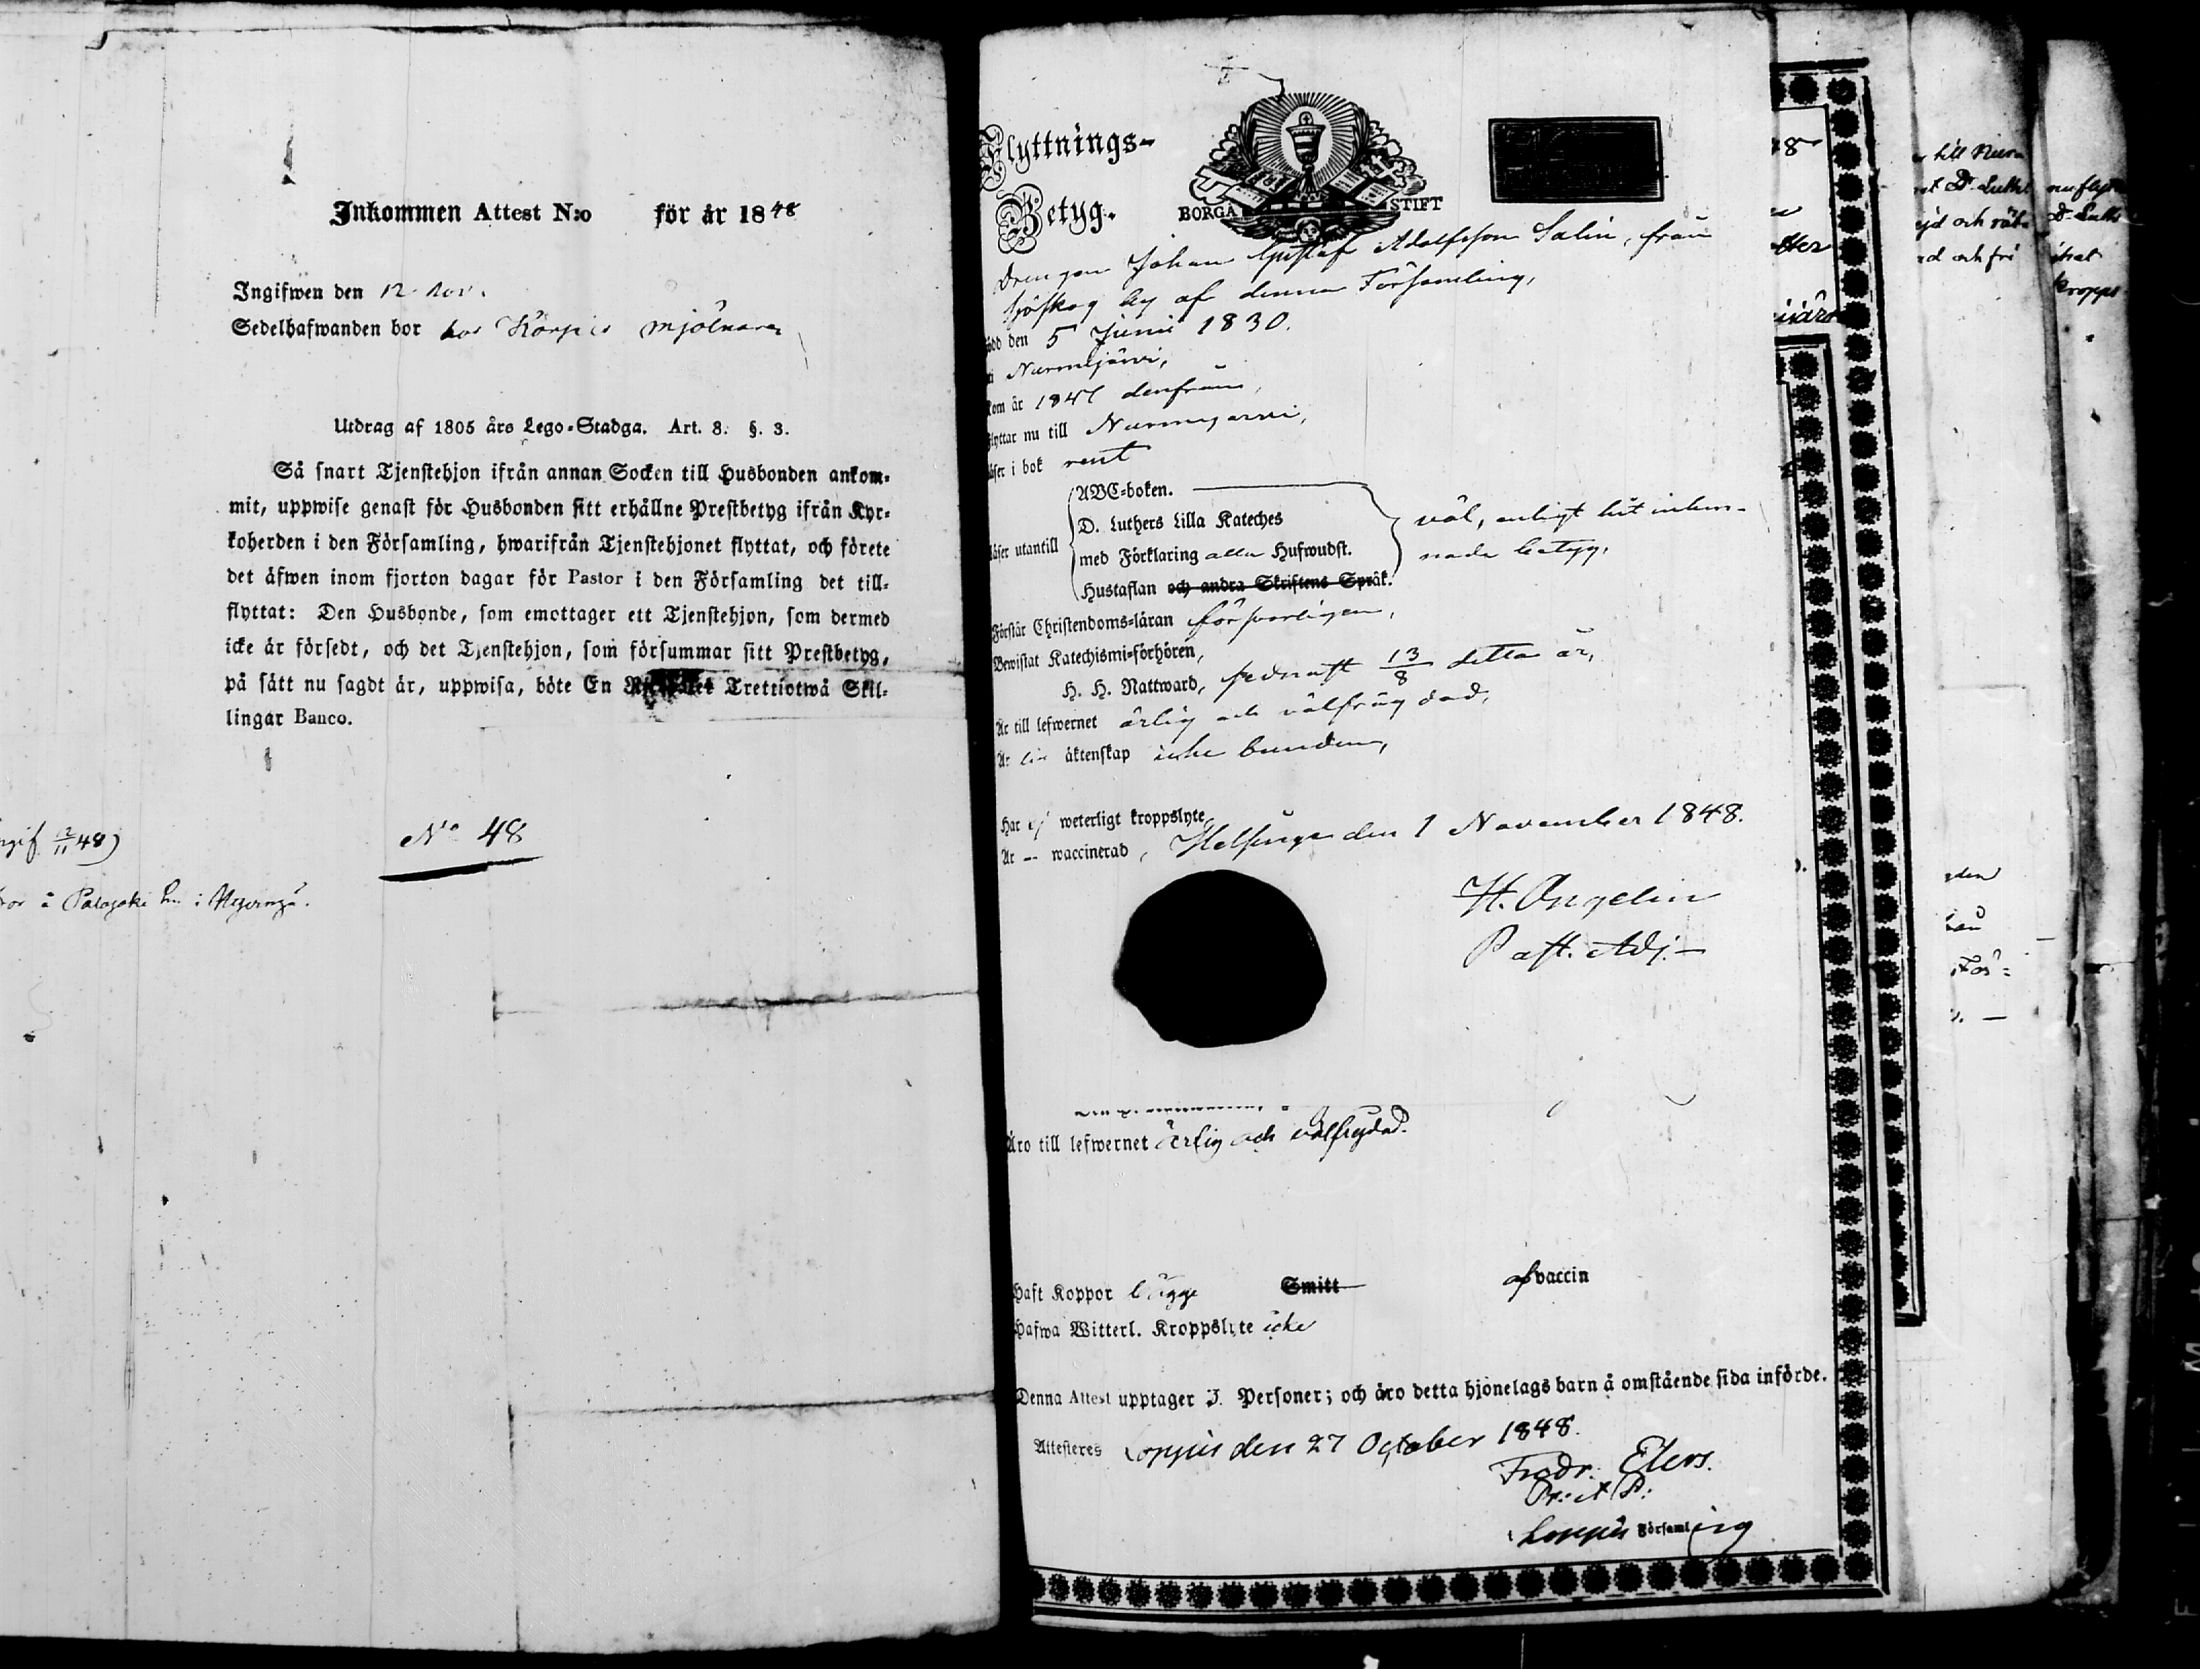 Inkommen Attest N:o för år 1848
Ingifwen den 12 Nov.
Sedelhafwanden bor hos Korpis mjölnare
Utdrag af 1805 års Lego-Stadga. Art. 8. §. 3.
Så snart Tjenstehjon ifrån annan Socken till Husbonden ankom-
mit, uppwise genast för Husbonden sitt erhållne Prestbetyg ifrån Kyr-
koherden i den Församling, hwarifrån Tjenstehjonet flyttat, och förete
det äfwen inom fjorton dagar för Pastor i den Församling det till-
flyttat: Den Husbonde, som emottager ett Tjenstehjon, som dermed
icke är försedt, och det Tjenstehjon, som försummar sitt Prestbetyg,
på sätt nu sagdt är, uppwisa, böte En Trettiotwå Skil-
lingar Banco.
No 48
48)
å i
Flyttnings-
Betyg.
BORGÅ STIFT
Drengen Johan Gustaf Adolfsson Salin, från
by af denna Församling,
född den 5 Junii 1830.
i Nurmijärvi,
kom år 1847 derifrån,
flyttar nu till Nurmijärvi,
läser i bok rent
läser utantill
ABC-boken.
D. Luthers Lilla Kateches
med Förklaring alla Hufwudst.
Hustaflan och andra Skriftens Språk.
väl, enligt hit inkom-
nade betyg.
Förstår Christendoms-läran försvarligen,
Bewistat Katechismi-förhören,
H. H. Nattward, sednast 13/8 detta år,
Är till lefwernet ärlig och välfrägdad,
Är till äktenskap icke bunden,
Har ej weterligt kroppslyte,
Är – waccinerad, Helsinge den 1 November 1848.
H. Ongelin
Past. Adj.
Äro till lefwernet ärlig och välfrejdad.
Haft Koppor Smitt af vaccin
Hafwa Witterl. Kroppslyte icke
Denna Attest upptager 3. Personer; och äro detta hjonelags barn å omstående sida införde.
Attesteras Loppis den 27 October 1848.
Fredr. Elers.
Loppis Församling
till Nurm
och
och fri
kropps
den
För-